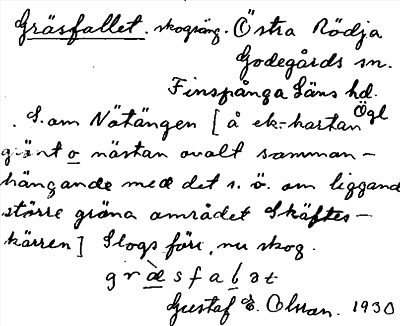 Gräsfallet. skogsäng. Östra Rödja
Godegårds sn.
Finspånga Läns hd.
Ögl
S. om Nötängen [å ek.-kartan
grönt o nästan ovalt samman-
hängande med det s. ö. om liggand
större gröna området Skäftes-
kärren] Slogs förr, nu skog.
græsfalət
Gustaf E. Olsson. 1930